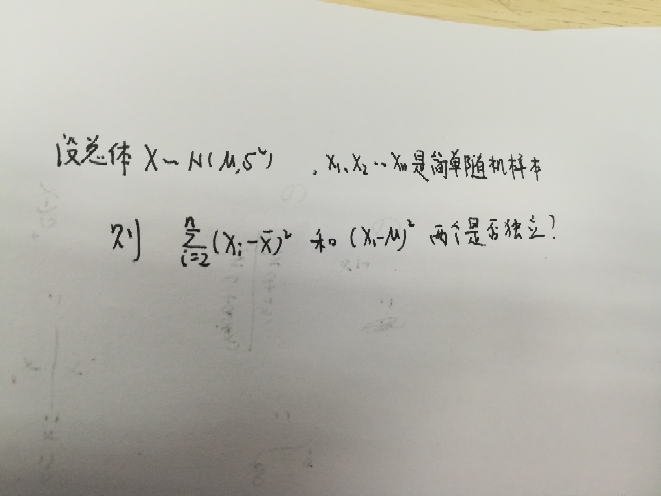 设总体 X~N(μ,σ²),X₁、X₂…Xₙ是简单随机样本
则 n∑i=2(Xᵢ-X̄)² 和 (X₁-μ)² 两个是否独立?